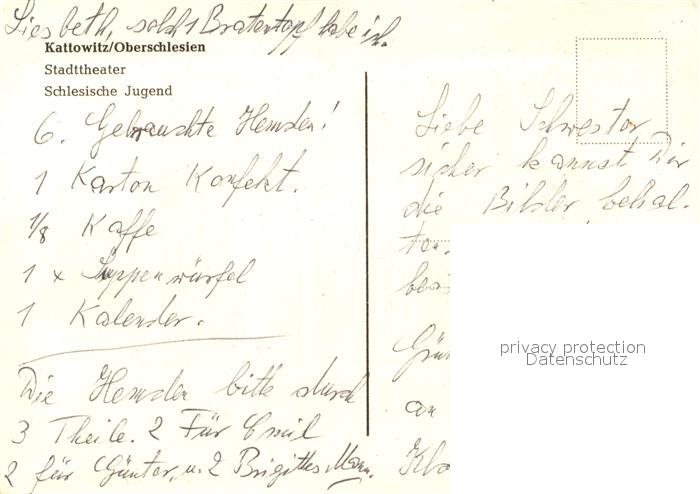 Liesbeth, solch 1 Bratentopf habe ich.
Kattowitz/Oberschlesien
Stadttheater
Schlesische Jugend
6. Gebrauchte Hemden!
1 Karton Konfekt.
1/8 Kaffe
1 x Suppenwürfel
1 Kalender.
Die Hemden bitte durch
3 Theile. 2 Für Emil
2 für Günter, u. 2 Brigittes Mann.
Liebe Schwester
sicher kannst Dir
die Bilder behal-
ten.
an
privacy protection
Datenschutz